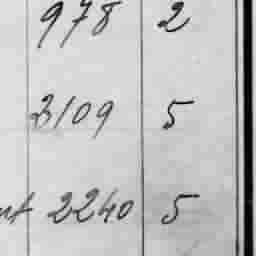 978 2
3109 5
nt 2240 5